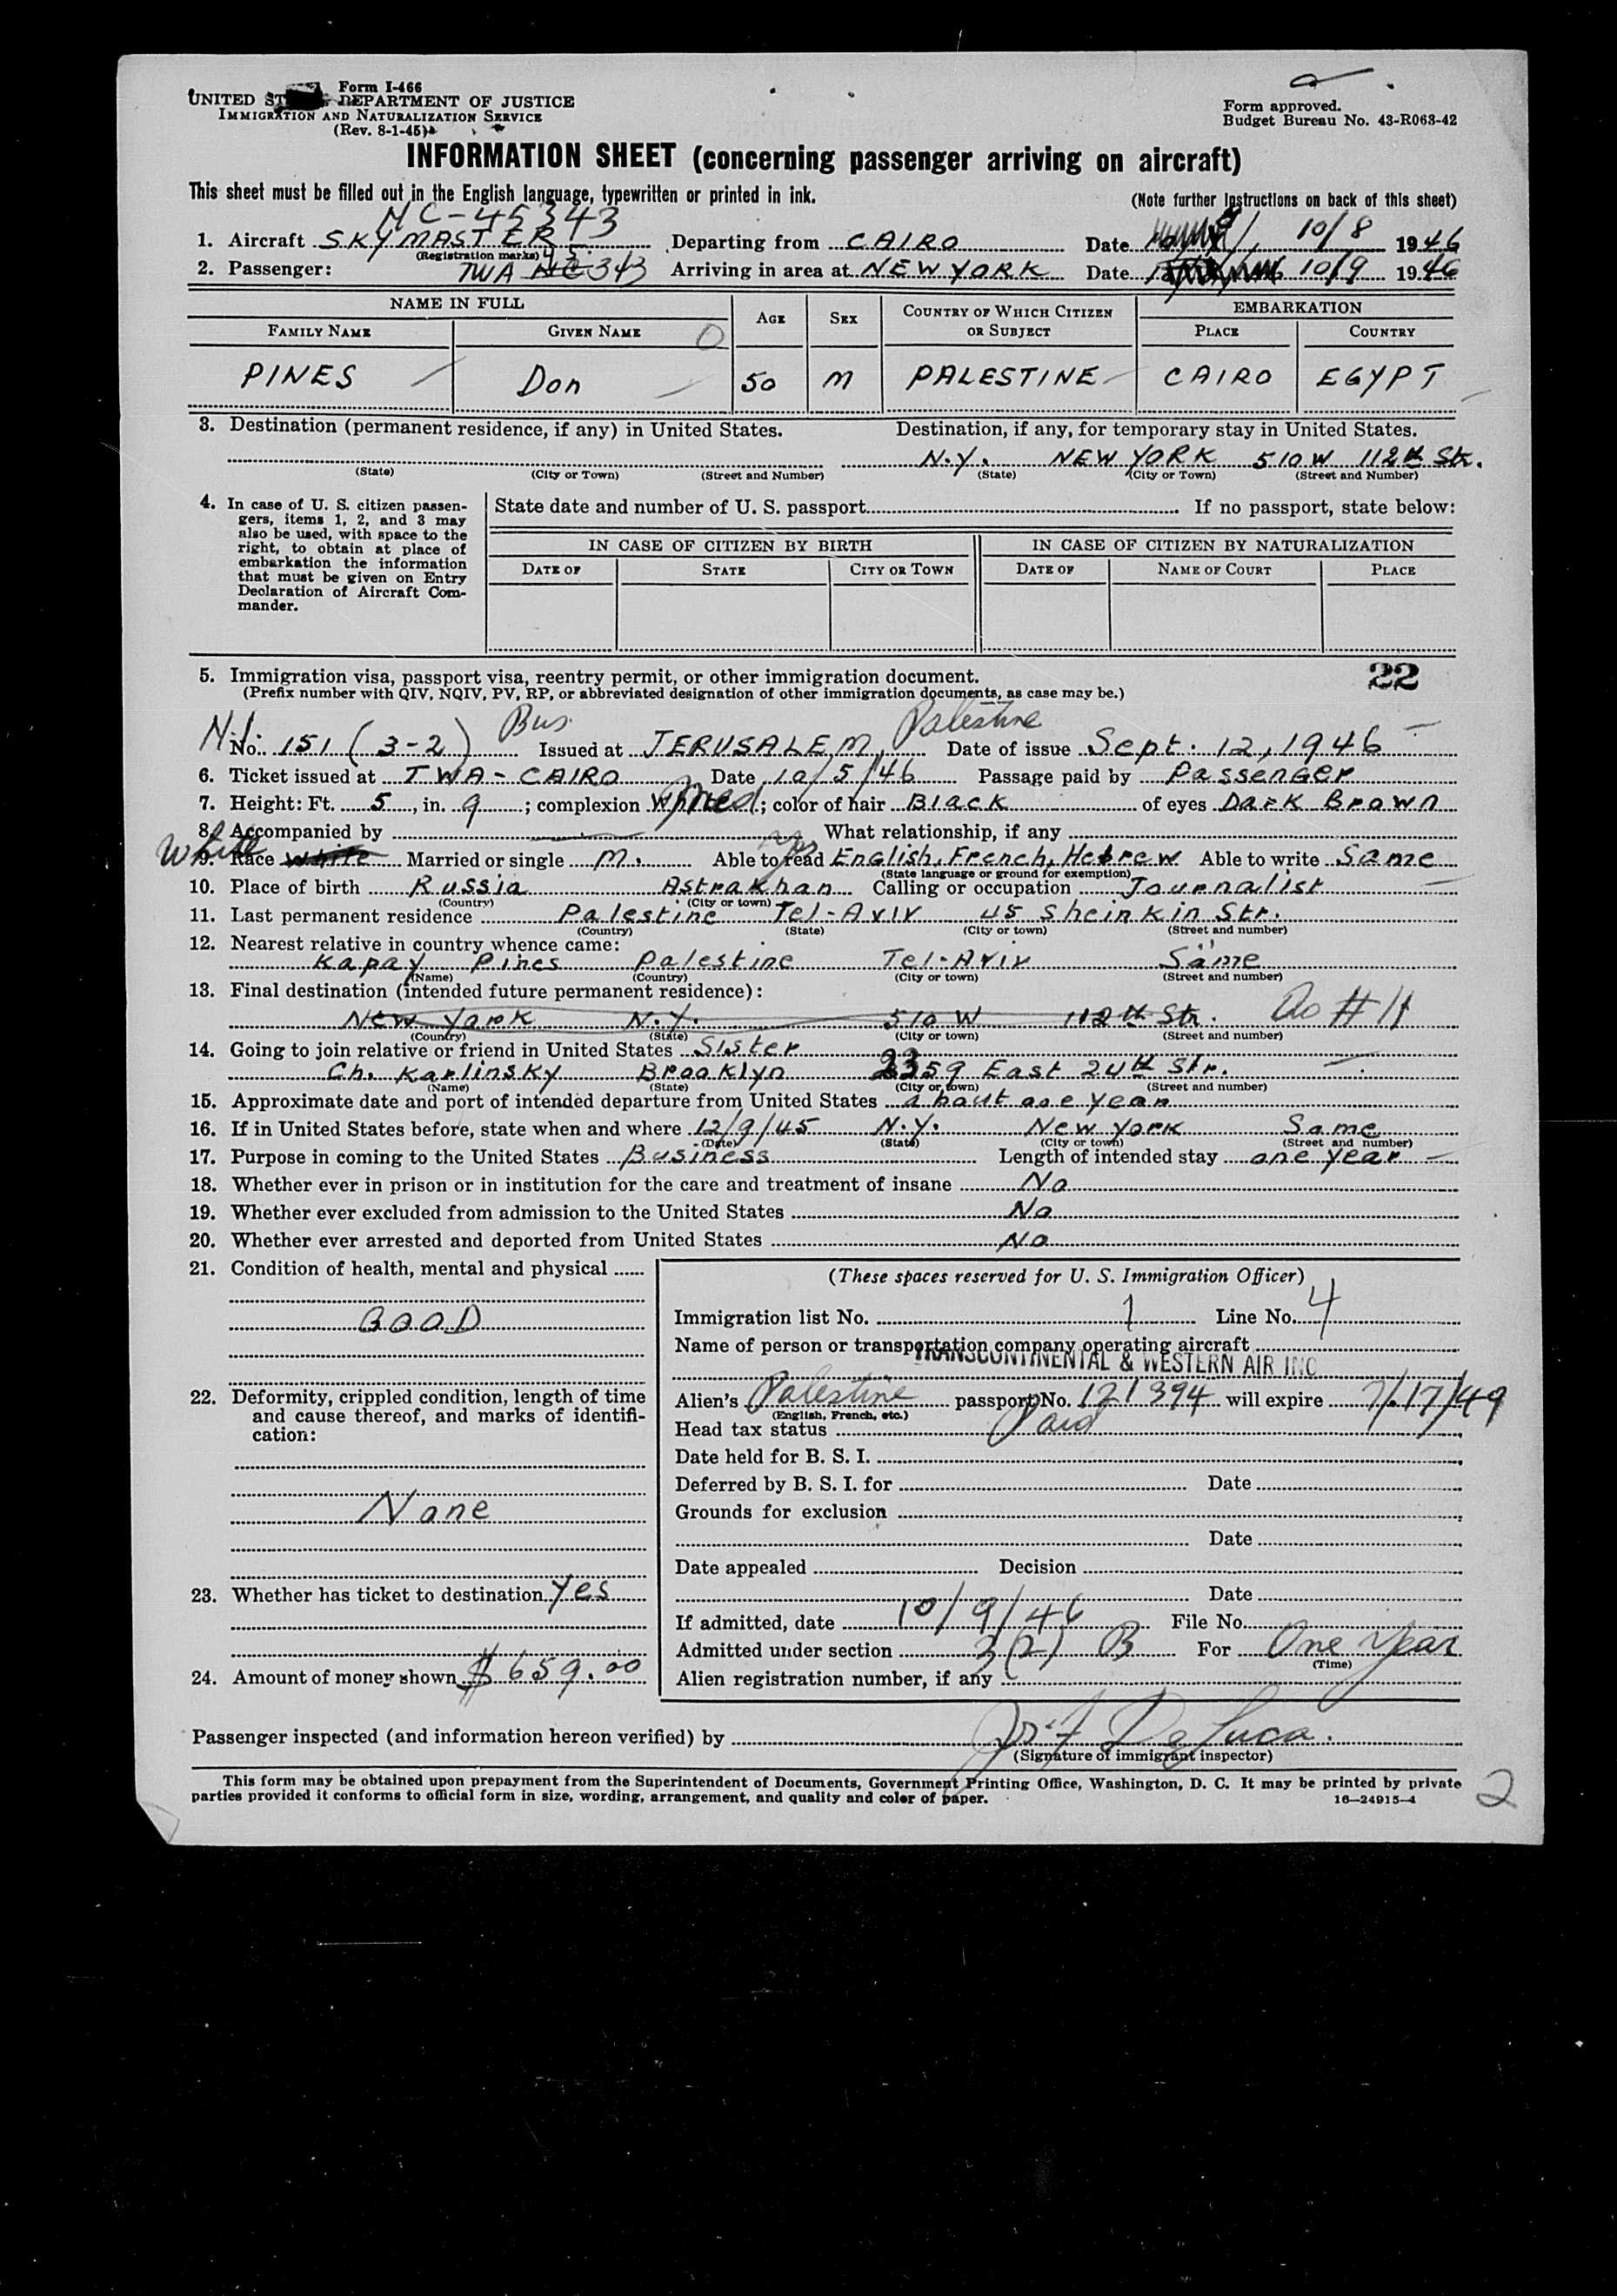 Form I-466
UNITED DEPARTMENT OF JUSTICE
IMMIGRATION AND NATURALIZATION SERVICE
(Rev. 8-1-45)
Form approved.
Budget Bureau No. 43-R063-42
INFORMATION SHEET (concerning passenger arriving on aircraft)
This sheet must be filled out in the English language, typewritten or printed in ink.
(Note further instructions on back of this sheet)
NC-45343
1. Aircraft SKYMASTER Departing from CAIRO Date 10/8 1946
(Registration marks)
2. Passenger: TWA NC 343 Arriving in area at NEW YORK Date 10/9 1946
NAME IN FULL
FAMILY NAME GIVEN NAME AGE SEX COUNTRY OF WHICH CITIZEN OR SUBJECT EMBARKATION PLACE COUNTRY
PINES Don 50 M PALESTINE CAIRO EGYPT
3. Destination (permanent residence, if any) in United States. Destination, if any, for temporary stay in United States.
N.Y. NEW YORK 510 W 112th Str.
(State) (City or Town) (Street and Number) (State) (City or Town) (Street and Number)
4. In case of U. S. citizen passengers, items 1, 2, and 3 may also be used, with space to the right, to obtain at place of embarkation the information that must be given on Entry Declaration of Aircraft Commander.
State date and number of U. S. passport If no passport, state below:
IN CASE OF CITIZEN BY BIRTH IN CASE OF CITIZEN BY NATURALIZATION
DATE OF STATE CITY OR TOWN DATE OF NAME OF COURT PLACE
22
5. Immigration visa, passport visa, reentry permit, or other immigration document.
(Prefix number with QIV, NQIV, PV, RP, or abbreviated designation of other immigration documents, as case may be.)
Bus. Palestine
No. 151 (3-2) Issued at JERUSALEM, Date of issue Sept. 12, 1946
6. Ticket issued at TWA - CAIRO Date 10/5/46 Passage paid by Passenger
7. Height: Ft. 5, in. 9; complexion Med; color of hair Black of eyes Dark Brown
8. Accompanied by What relationship, if any
White yes
9. Race White Married or single M. Able to read English, French, Hebrew Able to write Same
(State language or ground for exemption)
10. Place of birth Russia Astrakhan Calling or occupation Journalist
(Country) (City or town)
11. Last permanent residence Palestine Tel-Aviv 45 Sheinkin Str.
(Country) (State) (City or town) (Street and number)
12. Nearest relative in country whence came:
Kapay Pines Palestine Tel-Aviv Same
(Name) (Country) (City or town) (Street and number)
13. Final destination (intended future permanent residence):
New York N.Y. 510 W 112th Str. Do # 11
(Country) (State) (City or town) (Street and number)
14. Going to join relative or friend in United States Sister
Ch. Karlinsky Brooklyn 2359 East 24th Str.
(Name) (State) (City or town) (Street and number)
15. Approximate date and port of intended departure from United States about one year
16. If in United States before, state when and where 12/9/45 N.Y. New York Same
(Date) (State) (City or town) (Street and number)
17. Purpose in coming to the United States Business Length of intended stay one year
18. Whether ever in prison or in institution for the care and treatment of insane No
19. Whether ever excluded from admission to the United States No
20. Whether ever arrested and deported from United States No
21. Condition of health, mental and physical
GOOD
22. Deformity, crippled condition, length of time and cause thereof, and marks of identification:
None
23. Whether has ticket to destination Yes
24. Amount of money shown $659.00
(These spaces reserved for U. S. Immigration Officer)
Immigration list No. 1 Line No. 4
Name of person or transportation company operating aircraft
TRANSCONTINENTAL & WESTERN AIR INC
Alien's Palestine passport No. 121394 will expire 7/17/49
(English, French, etc.)
Head tax status Paid
Date held for B. S. I.
Deferred by B. S. I. for Date
Grounds for exclusion
Date
Date appealed Decision
Date
If admitted, date 10/9/46 File No.
Admitted under section 3(2) B For One Year
(Time)
Alien registration number, if any
Passenger inspected (and information hereon verified) by De Luca.
(Signature of immigrant inspector)
This form may be obtained upon prepayment from the Superintendent of Documents, Government Printing Office, Washington, D. C. It may be printed by private
parties provided it conforms to official form in size, wording, arrangement, and quality and color of paper.
16—24915-4
2